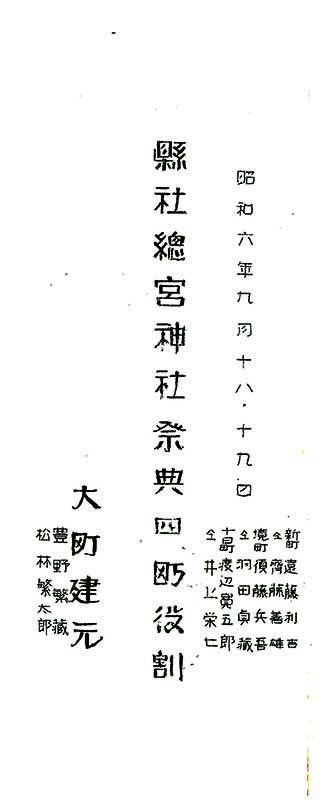 昭和六年九月十八・十九日
新町 遠藤利吉
仝 齊藤善雄
境町 須藤兵吾
仝 羽田貞藏
十日町 渡辺寅五郎
仝 井上栄七
縣社總宮神社祭典四町役割
大町建元
豊野繁藏
松林繁太郎